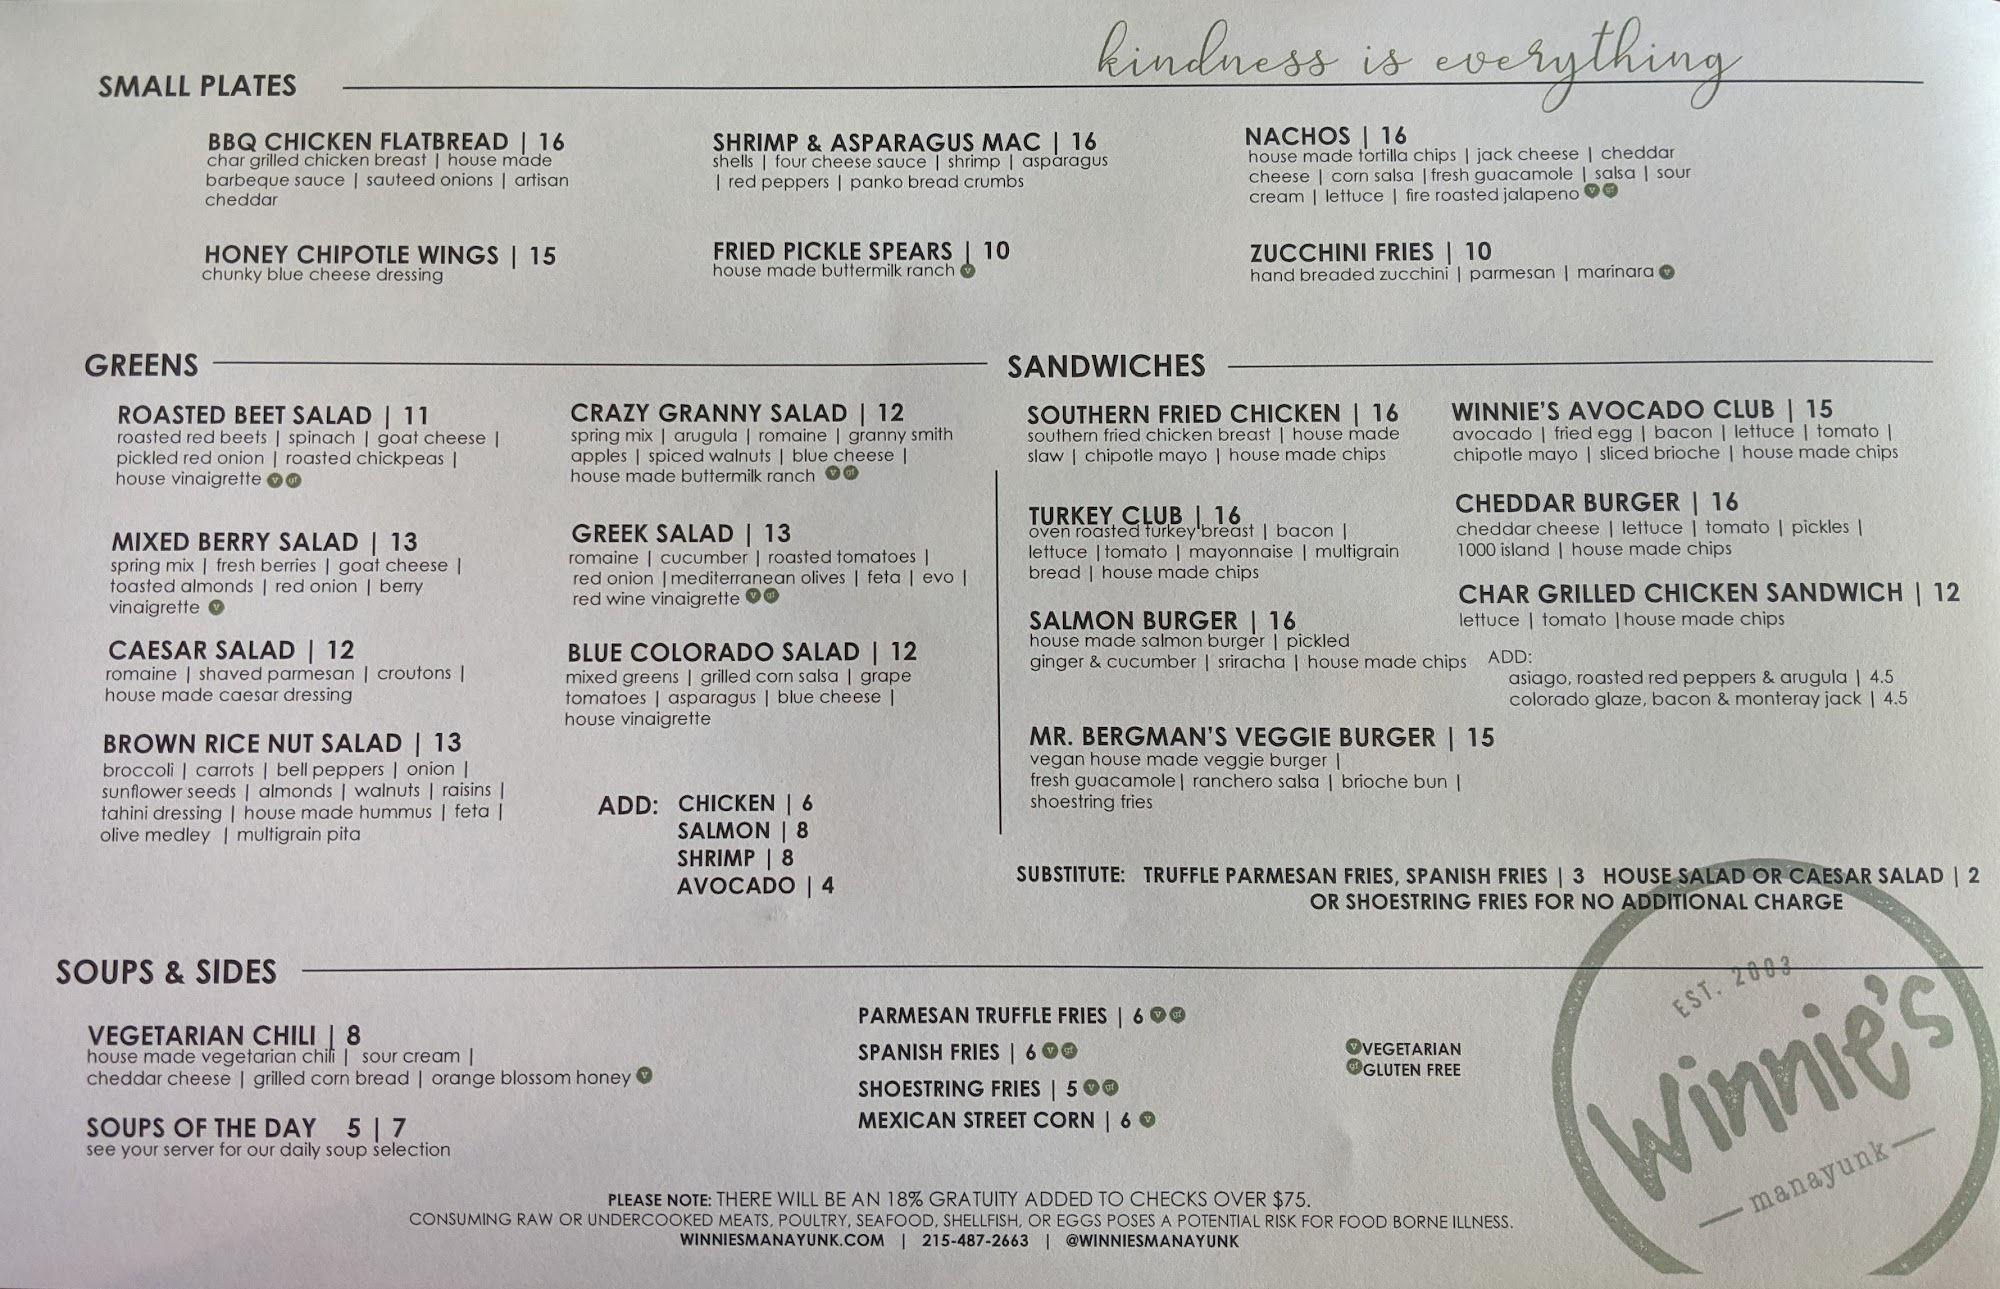 kindness is everything
SMALL PLATES
BBQ CHICKEN FLATBREAD | 16
char grilled chicken breast | house made
barbeque sauce | sauteed onions | artisan
cheddar
SHRIMP & ASPARAGUS MAC | 16
shells | four cheese sauce | shrimp | asparagus
| red peppers | panko bread crumbs
NACHOS | 16
house made tortilla chips | jack cheese | cheddar
cheese | corn salsa |fresh guacamole | salsa | sour
cream | lettuce | fire roasted jalapeno v gf
HONEY CHIPOTLE WINGS | 15
chunky blue cheese dressing
FRIED PICKLE SPEARS | 10
house made buttermilk ranch v
ZUCCHINI FRIES | 10
hand breaded zucchini | parmesan | marinara v
GREENS
ROASTED BEET SALAD | 11
roasted red beets | spinach | goat cheese |
pickled red onion | roasted chickpeas |
house vinaigrette v gf
MIXED BERRY SALAD | 13
spring mix | fresh berries | goat cheese |
toasted almonds | red onion | berry
vinaigrette v
CAESAR SALAD | 12
romaine | shaved parmesan | croutons |
house made caesar dressing
BROWN RICE NUT SALAD | 13
broccoli | carrots | bell peppers | onion |
sunflower seeds | almonds | walnuts | raisins |
tahini dressing | house made hummus | feta |
olive medley | multigrain pita
CRAZY GRANNY SALAD | 12
spring mix | arugula | romaine | granny smith
apples | spiced walnuts | blue cheese |
house made buttermilk ranch v gf
GREEK SALAD | 13
romaine | cucumber | roasted tomatoes |
red onion |mediterranean olives | feta | evo |
red wine vinaigrette v gf
BLUE COLORADO SALAD | 12
mixed greens | grilled corn salsa | grape
tomatoes | asparagus | blue cheese |
house vinaigrette
ADD: CHICKEN | 6
SALMON | 8
SHRIMP | 8
AVOCADO | 4
SANDWICHES
SOUTHERN FRIED CHICKEN | 16
southern fried chicken breast | house made
slaw | chipotle mayo | house made chips
TURKEY CLUB | 16
oven roasted turkey breast | bacon |
lettuce |tomato | mayonnaise | multigrain
bread | house made chips
SALMON BURGER | 16
house made salmon burger | pickled
ginger & cucumber | sriracha | house made chips
MR. BERGMAN'S VEGGIE BURGER | 15
vegan house made veggie burger |
fresh guacamole| ranchero salsa | brioche bun |
shoestring fries
WINNIE'S AVOCADO CLUB | 15
avocado | fried egg | bacon | lettuce | tomato |
chipotle mayo | sliced brioche | house made chips
CHEDDAR BURGER | 16
cheddar cheese | lettuce | tomato | pickles |
1000 island | house made chips
CHAR GRILLED CHICKEN SANDWICH | 12
lettuce | tomato |house made chips
ADD:
asiago, roasted red peppers & arugula | 4.5
colorado glaze, bacon & monteray jack | 4.5
SUBSTITUTE: TRUFFLE PARMESAN FRIES, SPANISH FRIES | 3 HOUSE SALAD OR CAESAR SALAD | 2
OR SHOESTRING FRIES FOR NO ADDITIONAL CHARGE
SOUPS & SIDES
VEGETARIAN CHILI | 8
house made vegetarian chili | sour cream |
cheddar cheese | grilled corn bread | orange blossom honey v
SOUPS OF THE DAY 5 | 7
see your server for our daily soup selection
PARMESAN TRUFFLE FRIES | 6 v gf
SPANISH FRIES | 6 v gf
SHOESTRING FRIES | 5 v gf
MEXICAN STREET CORN | 6 v
v VEGETARIAN
gf GLUTEN FREE
EST. 2003
Winnie's
manayunk
PLEASE NOTE: THERE WILL BE AN 18% GRATUITY ADDED TO CHECKS OVER $75.
CONSUMING RAW OR UNDERCOOKED MEATS, POULTRY, SEAFOOD, SHELLFISH, OR EGGS POSES A POTENTIAL RISK FOR FOOD BORNE ILLNESS.
WINNIESMANAYUNK.COM | 215-487-2663 | @WINNIESMANAYUNK